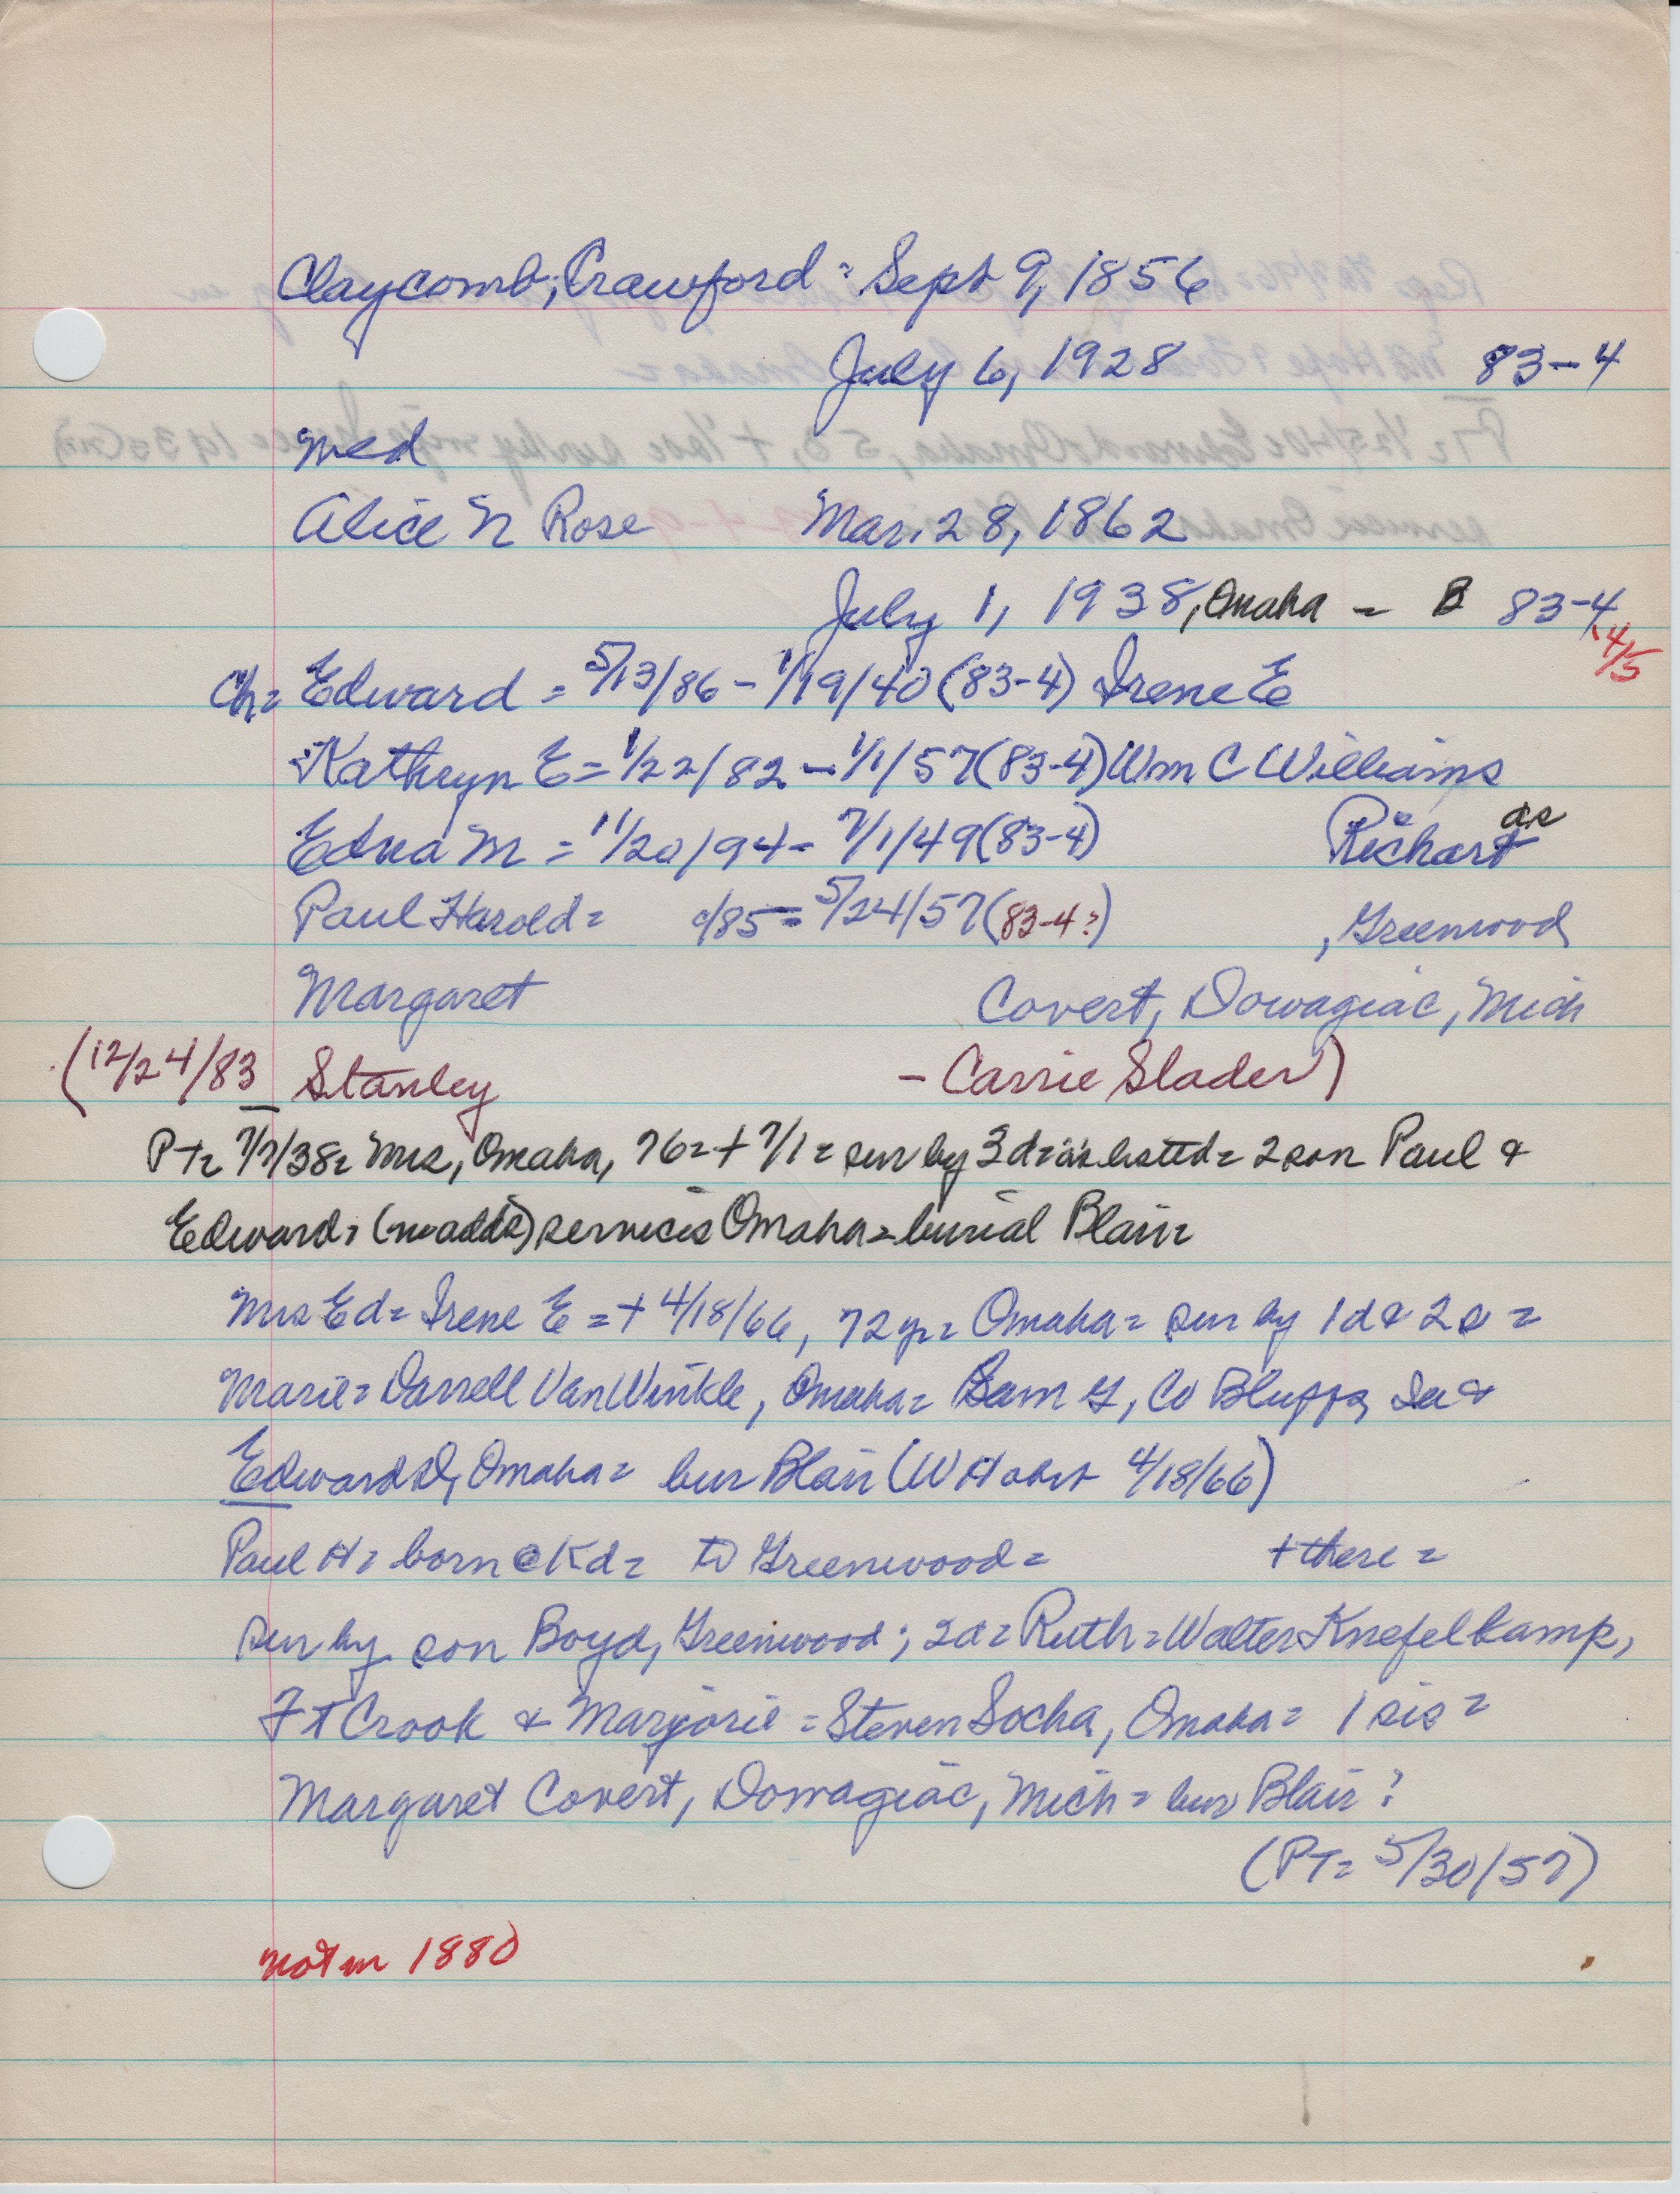 Claycomb, Crawford = Sept 9, 1856
July 6, 1928 83-4
med
Alice N Rose Mar. 28, 1862
July 1, 1938, Omaha - B 83-4
4/5
Ch= Edward = 5/13/86 - 1/19/40 (83-4) Irene E
Kathryn E = 1/22/82 - 1/1/57 (83-4) Wm C Williams
Edna M = 11/20/94 - 7/1/49 (83-4) Richart
Paul Harold = c/85 = 5/24/57 (83-4?) , Greenwood
Margaret Covert, Dowagiac, Mich
(12/24/83 Stanley - Carrie Slader)
PT= 7/7/38= Mrs, Omaha, 76= + 7/1= sur by 3d= as listed= 2 son Paul &
Edward= (no adds) services Omaha= burial Blair=
Mrs Ed= Irene E = + 4/18/66, 72 yr= Omaha= sur by 1d & 2s =
Marie= Darrell VanWinkle, Omaha= Sam G, Co Bluffs, Ia &
Edward D, Omaha= bur Blair (WH 4/18/66)
Paul H= born @ Kd= to Greenwood= + there =
sur by son Boyd, Greenwood; 2d= Ruth= Walter Knefelkamp,
Ft Crook & Marjorie = Steven Socha, Omaha= 1 sis =
Margaret Covert, Dowagiac, Mich= bur Blair?
(PT= 5/30/57)
not in 1880